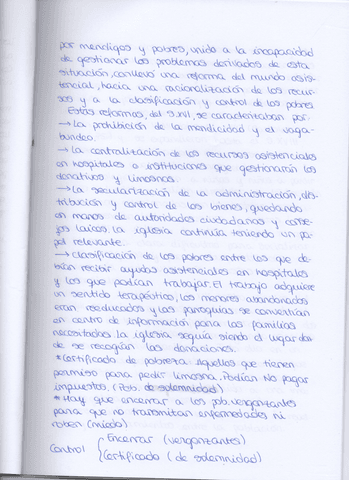 por mendigos y pobres, unido a la incapacidad
de gestionar los problemas derivados de esta
situación, conllevó una reforma del mundo asis-
tencial, hacia una racionalización de los recur-
sos y a la clasificación y control de los pobres
Estas reformas, del S.XVI, se caracterizaban por:
→ La prohibición de la mendicidad y el vaga-
bundeo.
→ La centralización de los recursos asistenciales
en hospitales o instituciones que gestionarán los
donativos y limosnas.
→ La secularización de la administración, dis-
tribución y control de los bienes, quedando
en manos de autoridades ciudadanas y conse-
jos laicos, la iglesia continúa teniendo un pa-
pel relevante.
→ Clasificación de los pobres entre los que de-
bían recibir ayudas asistenciales en hospitales
y los que podían trabajar. El trabajo adquiere
un sentido terapéutico, los menores abandonados
eran reeducados y las parroquias se convertían
en centro de información para las familias
necesitadas la iglesia seguía siendo el lugar don-
de se recogían las donaciones.
*Certificado de pobreza. Aquellos que tienen
permiso para pedir limosna. Podían No pagar
impuestos. (Pob. de solemnidad)
* Hay que encerrar a los pob. vergonzantes
para que no transmitan enfermedades ni
roben (miedo)
Control { Encerrar (vergonzantes)
Certificado (de solemnidad)